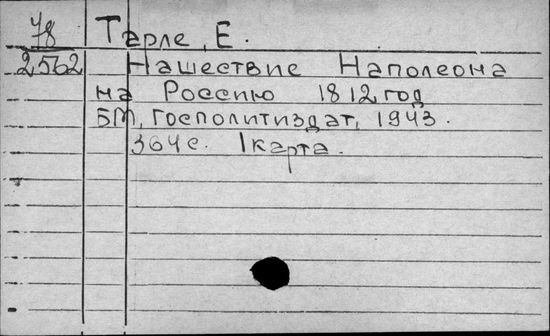 78 Тарле, Е.
2562 Нашествие Наполеона
на Россию 1812 год
БМ, Госполитиздат, 1943.
364 с. 1 карта.